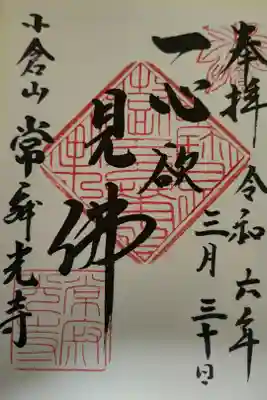 奉拝
令和六年
三月三十日
一心欲
見佛
小倉山
常寂光寺